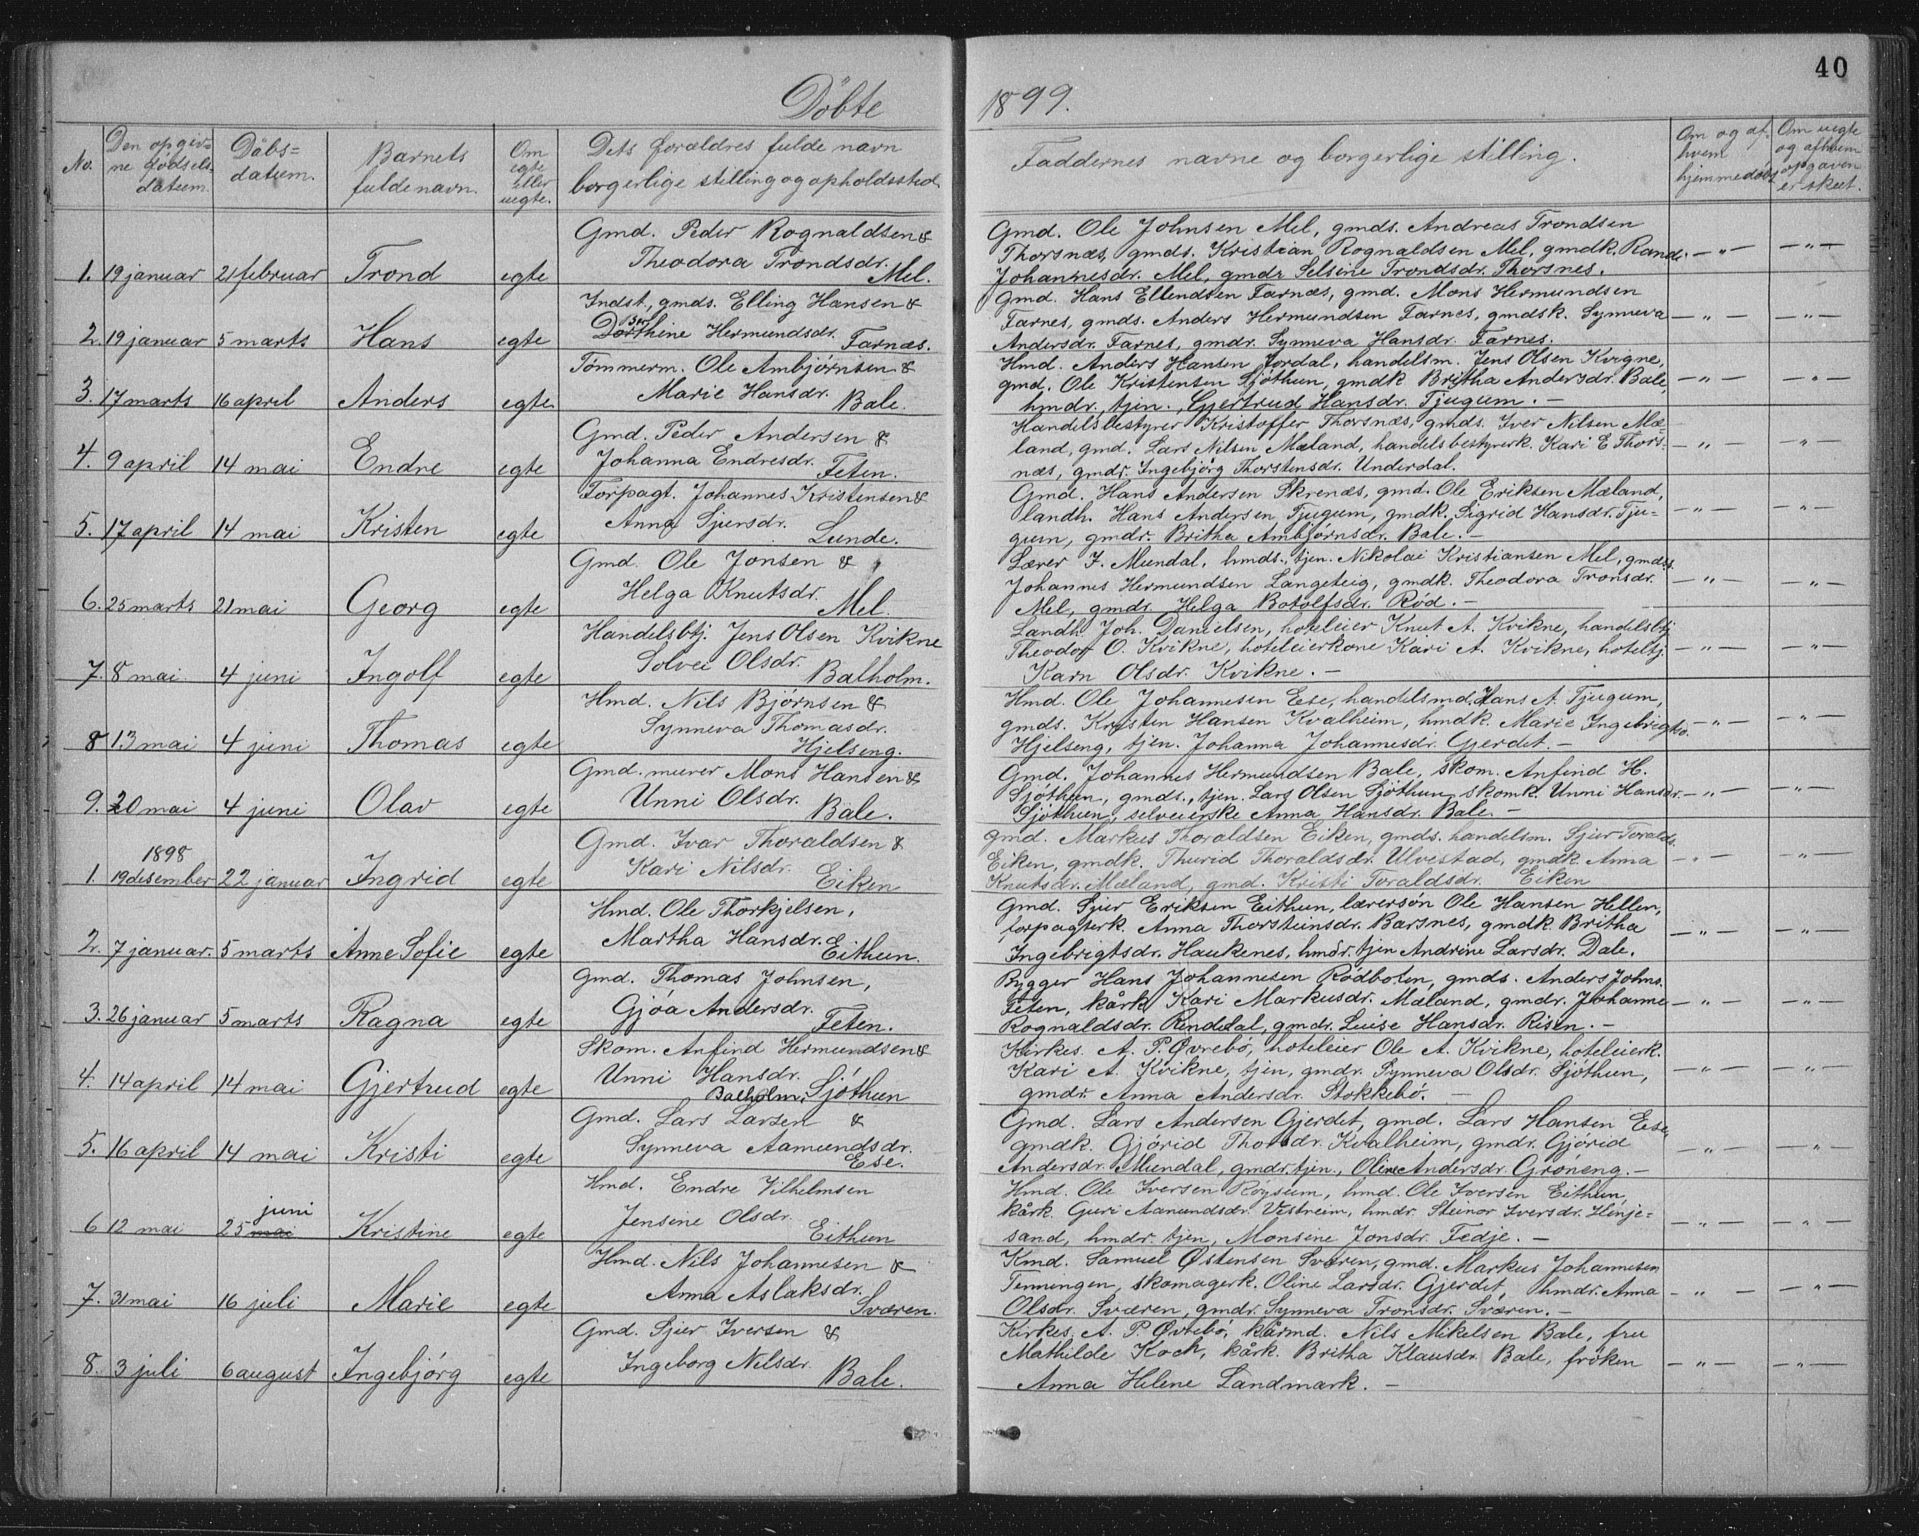 40
Döbte 1899.
No.
Den opgiv=
ne fødsels-
datum.
Döbs=
datum.
Barnets
fulde navn.
Om
egte
eller
uegte.
Dets forældres fulde navn
borgerlige stilling og opholdssted.
Faddernes navne og borgerlige stilling.
Om og af
hvem
hjemmedøbt
Om uegte
og af hvem
opgaven
er skeet.
Gmd. Peder Rognaldsen &
Theodora Trondsdr.
1. 19 januar 21 februar Trond egte Mel.
Gmd. Ole Johnsen Mel, gmds. Andreas Trondsen
Thorsnæs, gmds. Kristian Rognaldsen Mel, gmdk. Rand. — „ — — „ —
Johannesdr. Mel, gmdr Selsine Trondsdr. Thorsnes.
Indst., gmds. Elling Hansen &
Dorthine Hermundsdr.
2. 19 januar 5 marts Hans egte Farnæs.
Gmd. Hans Ellendsen Farnæs, gmd. Mons Hermundsen
Farnes, gmds. Anders Hermundsen Farnes, gmdsk. Synneva — „ — — „ —
Andersdr. Farnes, gmdr. Synneva Hansdr. Farnes.
Tømmerm. Ole Ambjørnsen &
Marie Hansdr.
3. 17 marts 16 april Anders egte Bale.
Hmd. Anders Hansen Jordal, handelsm. Jens Olsen Kvigne,
gmd. Ole Kristensen Sjøthun, gmdk Britha Andersdr. Bale, — „ — — „ —
hmdr., tjen., Gjertrud Hansdr. Tjugum. —
Gmd. Peder Andersen &
Johanna Endresdr.
4. 9 april 14 mai Endre egte Feten.
Handelsbestyrer Kristoffer Thorsnæs, gmds. Iver Nilsen Mæ=
land, gmd. Lars Nilsen Mæland, handelsbestyrerk. Kari E. Thors- — „ — — „ —
næs, gmdr. Ingebjørg Thorstensdr. Underdal.
Forpagt. Johannes Kristensen &
Anna Sjursdr.
5. 17 april 14 mai Kristen egte Lunde.
Gmd. Hans Andersen Skrenæs, gmd. Ole Eriksen Mæland,
landh. Hans Andersen Tjugum, gmdk. Sigrid Hansdr. Tju- — „ — — „ —
gum, gmdr. Britha Ambjørnsdr. Bale. —
Gmd. Ole Jonsen &
Helga Knutsdr.
6. 25 marts 21 mai Georg egte Mel.
Lærer J. Mundal, hmds., tjen. Nikolai Kristiansen Mel, gmds.
Johannes Hermundsen Langeteig, gmdk. Theodora Tronsdr. — „ — — „ —
Mel, gmdr. Helga Botolfsdr. Rød. —
Handelsbtj. Jens Olsen Kvikne
Solvei Olsdr.
7. 8 mai 4 juni Ingolf egte Balholm.
Landh. Joh. Danielsen, hoteleier Knut A. Kvikne, handelsbtj.
Theodor O. Kvikne, hoteleierkone Kari A. Kvikne, hotelbtj. — „ — — „ —
Karn Olsdr. Kvikne. —
Hmd. Nils Bjørnsen &
Synneva Thomasdr.
8 13 mai 4 juni Thomas egte Hjelseng.
Hmd. Ole Johannesen Ese, handelsmd. Hans A. Tjugum,
gmds. Kristen Hansen Kvalheim, hmdk. Marie Ingebrigtsd. — „ — — „ —
Hjelseng, tjen. Johanna Johannesdr. Gjerdet. —
Gmd. murer Mons Hansen &
Unni Olsdr.
9. 20 mai 4 juni Olav egte Bale.
Gmd. Johannes Hermundsen Bale, skom. Anfind H.
Sjøthun, gmds., tjen. Lars Olsen Sjøthun, skomk. Unni Hansdr. — „ — — „ —
Sjøthun, selveierske Anna Hansdr. Bale. —
Gmd. Ivar Thoraldsen &
1898 Kari Nilsdr.
1. 19 desember 22 januar Ingrid egte Eiken
Gmd. Markus Thoraldsen Eiken, gmds. handelsm. Sjur Toralds.
Eiken, gmdk. Thurid Thoraldsdr. Ulvestad, gmdk Anna — „ — — „ —
Knutsdr. Mæland, gmd. Kristi Toraldsdr. Eiken
Hmd. Ole Thorkjelsen,
Martha Hansdr.
2. 7 januar. 5 marts Anne Sofie egte Eithun.
Gmd. Sjur Eriksen Eithun, lærersøn Ole Hansen Hellen,
forpagterk. Anna Thorsteinsdr. Barsnes, gmdk Britha — „ — — „ —
Ingebrigtsdr. Haukenes, hmdr. tjen Andrine Larsdr. Dale.
Gmd. Thomas Johnsen,
Gjøa Andersdr.
3. 26 januar 5 marts Ragna egte Feten.
Bygger Hans Johannesen Rødboten, gmds. Anders Johns.
Feten, kårk Kari Markusdr. Mæland, gmdr. Johanne — „ — — „ —
Rognaldsdr. Rendedal, gmdr. Luise Hansdr. Risen. —
Skom. Anfind Hermundsen &
Unni Hansdr.
4. 14 april 14 mai Gjertrud egte Balholm, Sjøthun
Kirkes. A. P. Øvrebø, hoteleier Ole A. Kvikne, hoteleierk.
Kari A. Kvikne, tjen, gmdr. Synneva Olsdr. Sjøthun, — „ — — „ —
gmdr. Anna Andersdr. Stokkebø. —
Gmd. Lars Larsen &
Synneva Aamundsdr.
5. 16 april 14 mai Kristi egte Ese.
Gmd. Lars Andersen Gjerdet, gmd. Lars Hansen Ese,
gmdk. Gjørid Thorsdr. Kvalheim, gmdr. Gjørid — „ — — „ —
Andersdr. Mundal, gmdr. tjen., Oline Andersdr. Grøneng. —
Hmd. Endre Vilhelmsen
juni Jensine Olsdr.
6 12 mai 25 mai Kristine egte Eithun
Hmd. Ole Iversen Røysum, hmd. Ole Iversen Eithun,
kårk. Guri Aamundsdr. Vestreim, hmdr. Steinor Iversdr. Hinje= — „ — — „ —
sand, hmdr. tjen, Monsine Jonsdr. Fedje. —
Hmd. Nils Johannesen &
Anna Aslaksdr.
7. 31 mai 16 juli Marie egte Sværen.
Kmd. Samuel Østensen Sværen, gmd. Markus Johannesen
Tenningen, skomagerk. Oline Larsdr. Gjerdet, hmdr. Anna — „ — — „ —
Olsdr. Sværen, gmdr. Synneva Tronsdr. Sværen. —
Gmd. Sjur Iversen &
Ingeborg Nilsdr.
8. 3 juli 6 august Ingebjörg egte Bale.
Kirkes. A. P. Øvrebø, kårmd. Nils Mikelsen Bale, fru
Mathilde Koch, kårk. Britha Klausdr. Bale, frøken — „ — — „ —
Anna Helene Landmark. —